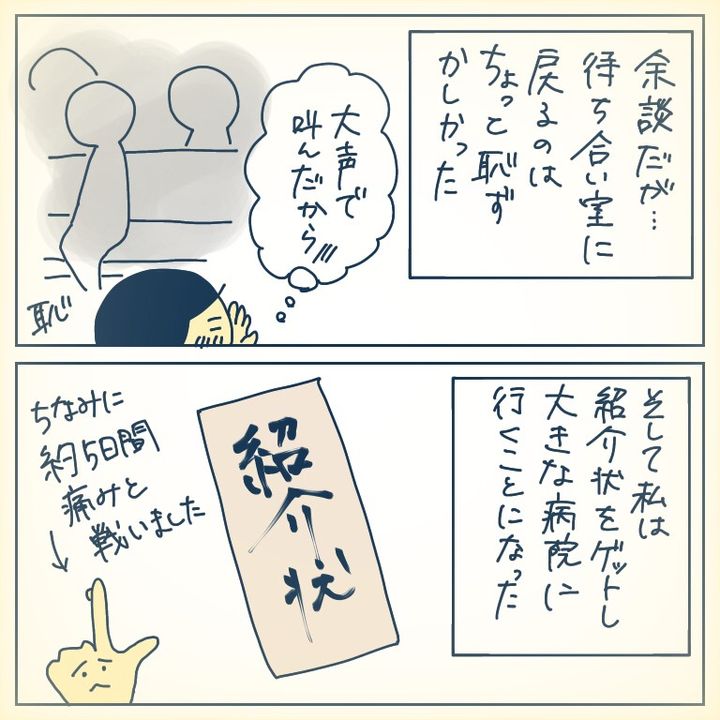 余談だが…
待ち合い室に
戻るのは
ちょっと恥ず
かしかった
大声で
叫んだから
恥
そして私は
紹介状をゲットし
大きな病院に
行くことになった
紹介状
ちなみに
約5日間
痛みと
戦いました